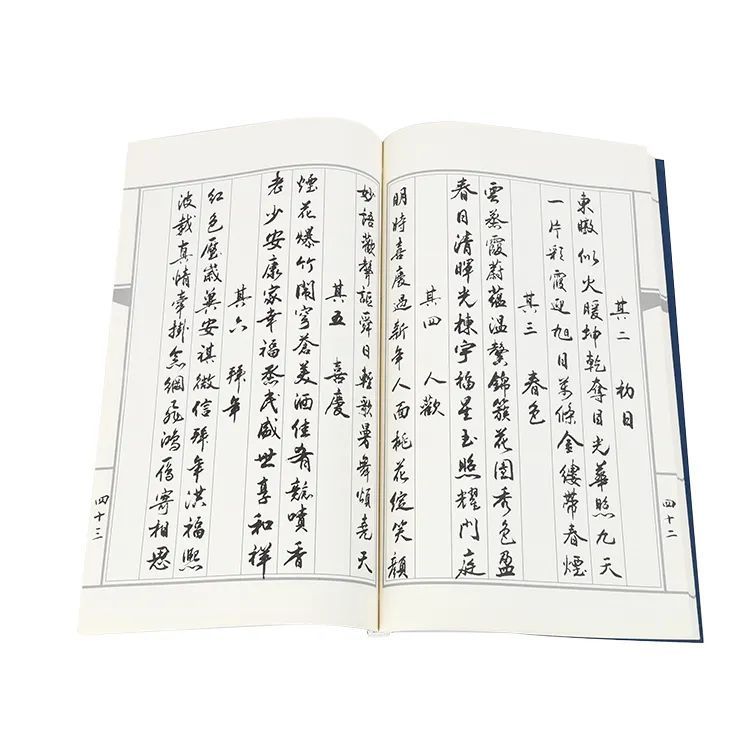 其二 初日
東暾似火暖坤乾奪目光華照九天
一片彩霞迎旭日萬條金縷帶春煙
其三 春色
雲蒸霞蔚蘊溫馨錦簇花團秀色盈
春日清暉光棟宇福星玉照耀門庭
其四 人歡
明時喜慶過新年人面桃花綻笑顏
四十二
妙語歡聲謳舜日輕歌曼舞頌堯天
其五 喜慶
煙花爆竹鬧穹蒼美酒佳肴競噴香
老少安康家幸福烝民盛世享和祥
其六 拜年
紅色壓歲與安祺微信拜年洪福熙
波載真情牽掛念網飛鴻雁寄相思
四十三